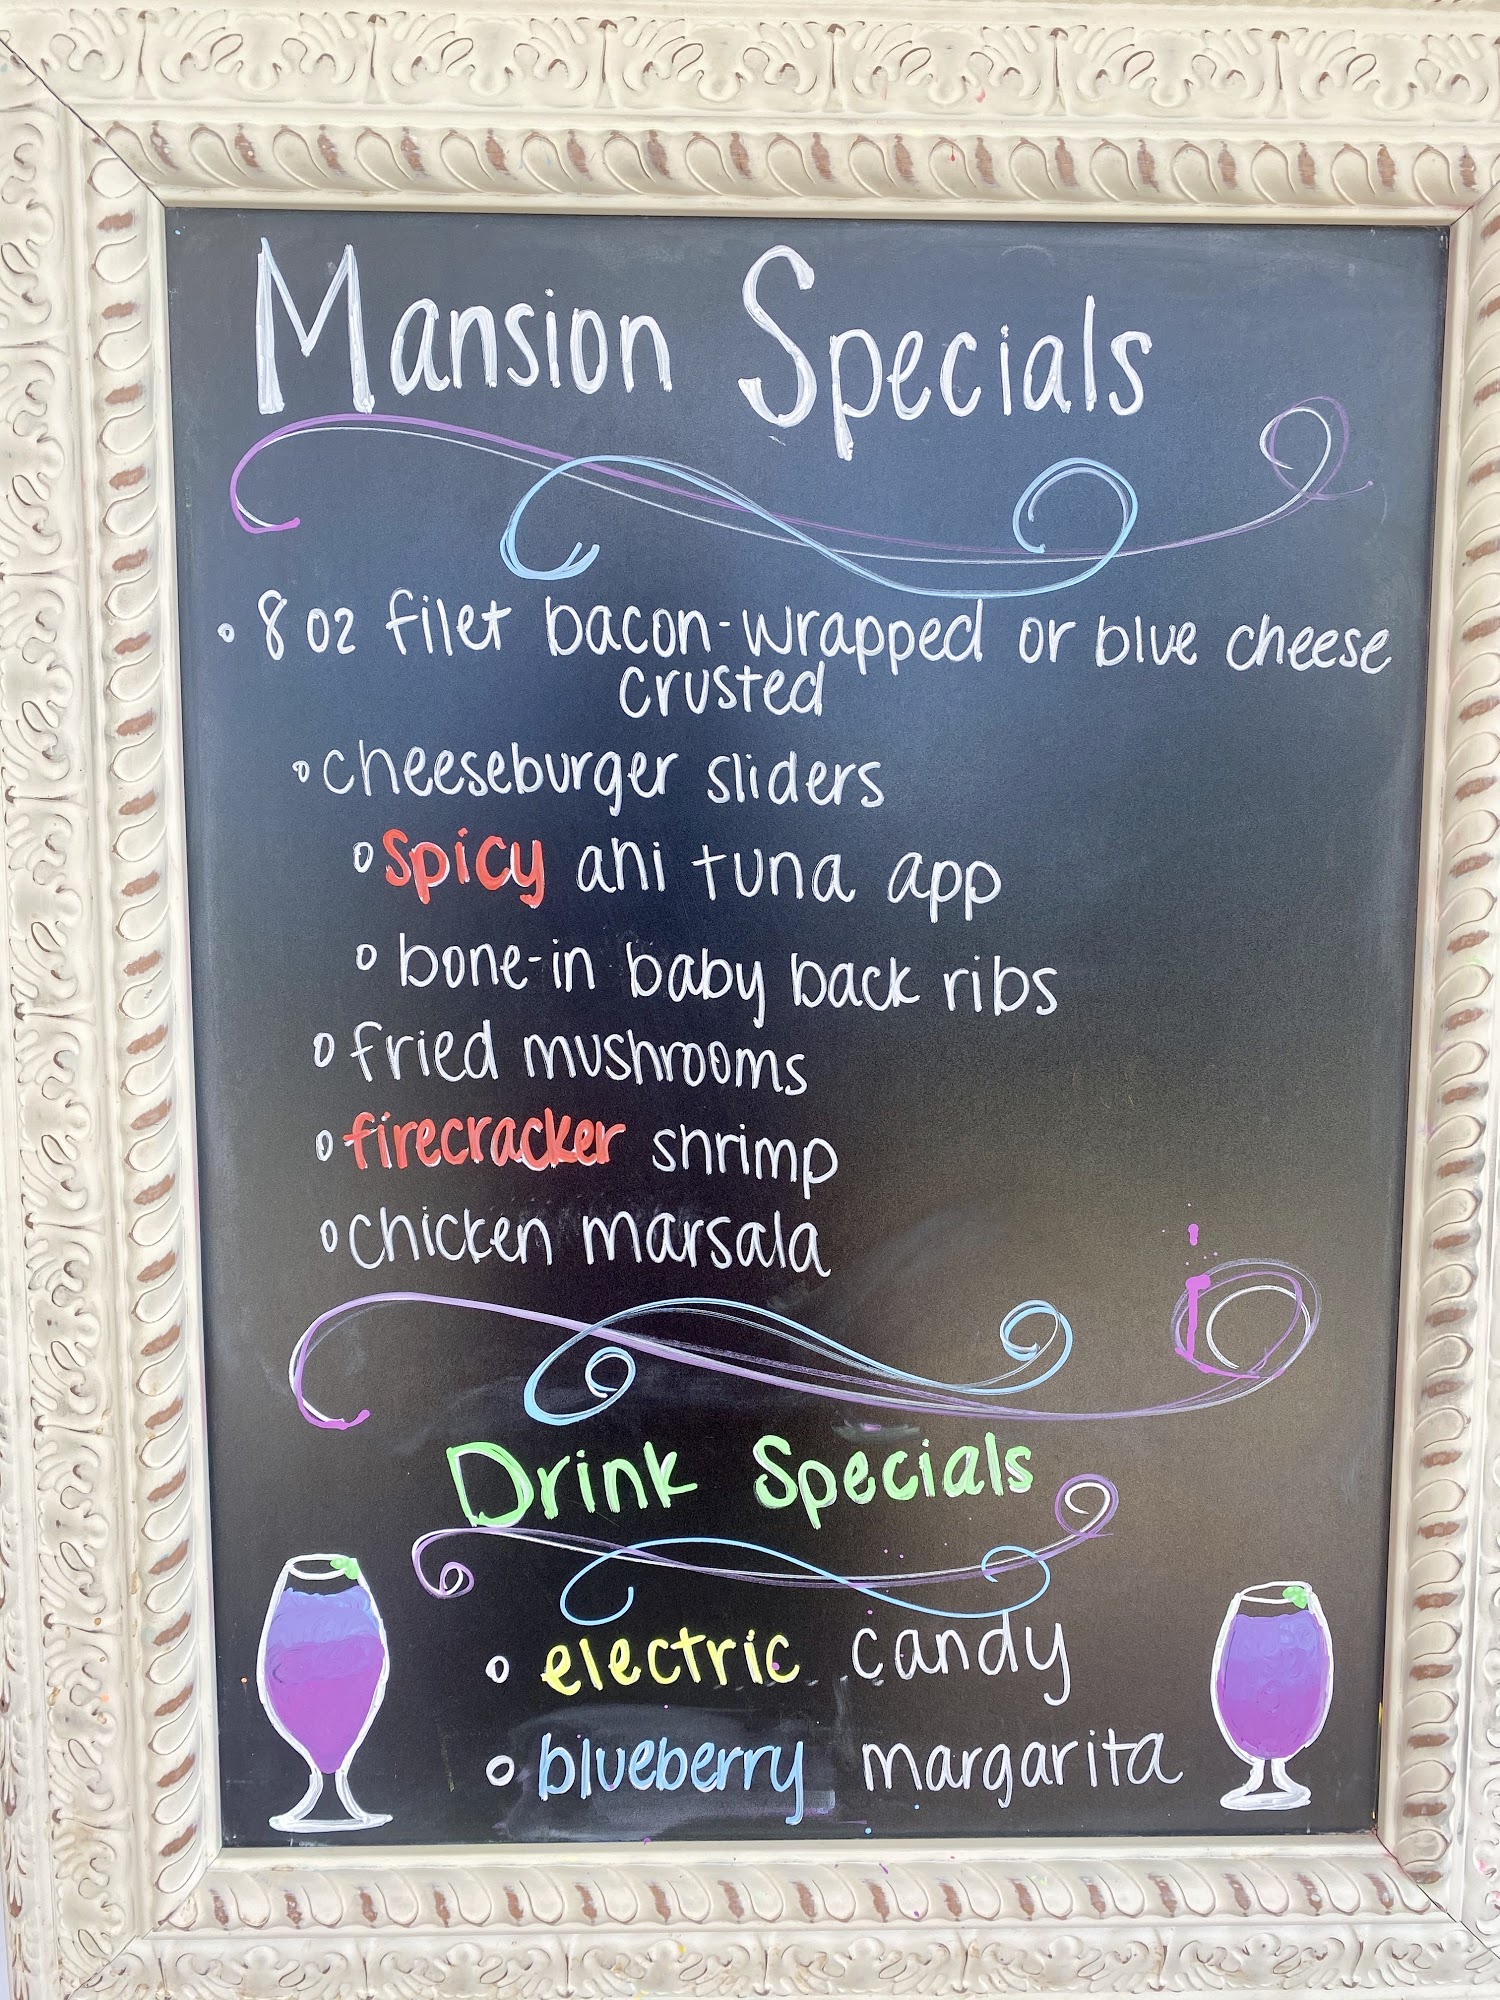 Mansion Specials
• 8 oz filet bacon-wrapped or blue cheese
crusted
• cheeseburger sliders
• spicy ahi tuna app
• bone-in baby back ribs
• fried mushrooms
• firecracker shrimp
• chicken marsala
Drink Specials
• electric candy
• blueberry margarita